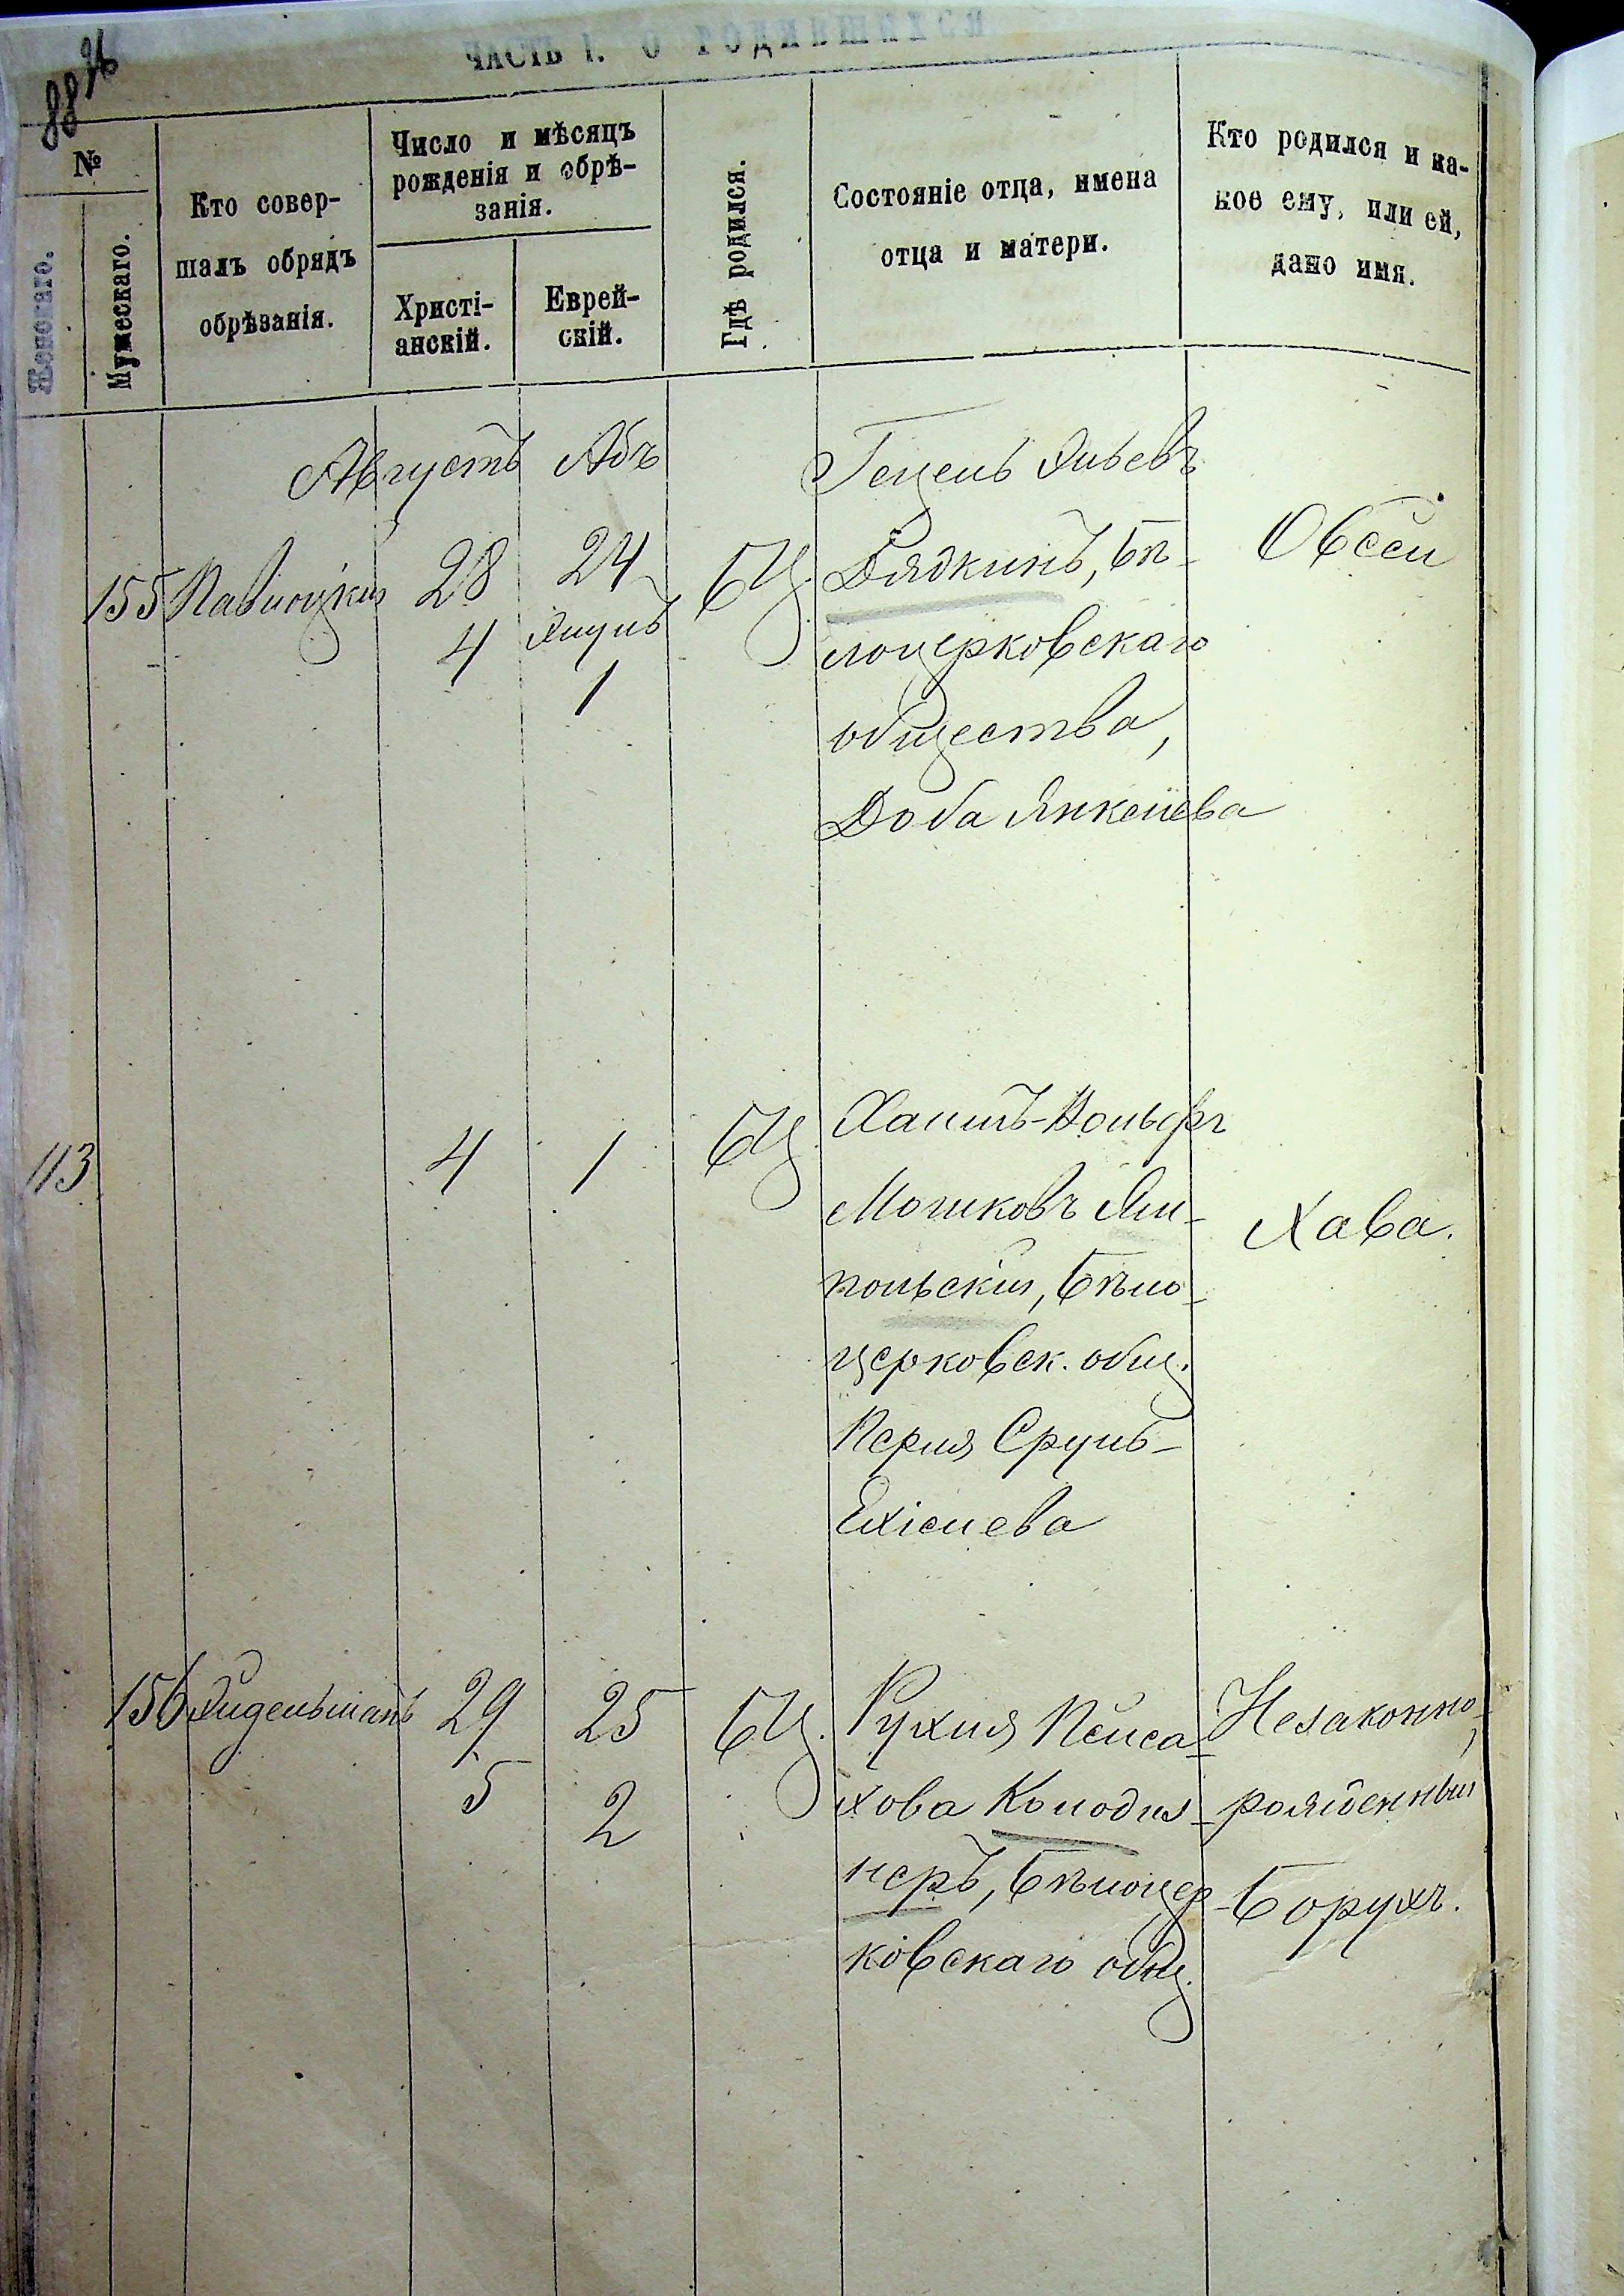 ЧАСТЬ I. О РОДИВШИХСЯ
№
Женскаго.
Мужескаго.
Кто совер-
шалъ обрядъ
обрѣзанія.
Число и мѣсяцъ
рожденія и обрѣ-
занія.
Христі-
анскій.
Еврей-
скій.
Гдѣ родился.
Состояніе отца, имена
отца и матери.
Кто родился и ка-
кое ему, или ей,
дано имя.
Августъ Абъ
155 Павлоцкій 28 24 БЦ.
4 Элулъ
1
Гецель
Бѣ-
лоцерковскаго
общества,
Доба Янкелева
Овсей
113 4 1 БЦ.
Хаимъ-Вольфъ
Мошковъ Ям-
польскій, Бѣло-
церковск. общ.
Перля Сруль-
Ехіелева
Хава.
156 Эйдельманъ 29 25 БЦ.
5 2
Рухля Пейса-
хова Колодя-
неръ, Бѣлоцер-
ковскаго общ.
Незаконно-
рожденный
Борухъ.